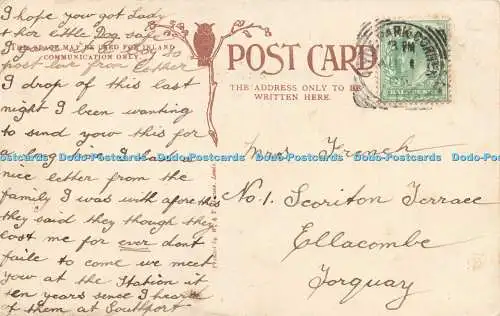 I hope you got Lady
& her Little Dog safe
THIS SPACE MAY BE USED FOR INLAND
COMMUNICATION ONLY.
post
from
I drop of this last
night I been wanting
to send you this for
a long
nice letter from the
family I was with afore this
they said they though they
lost me for ever dont
faile to come we meet
you at the Station it
ten years since I hear
of them at Southport
POST CARD
THE ADDRESS ONLY TO BE
WRITTEN HERE.
PARK CORNER
HALFPENNY
Mrs French
No. 1. Scoriton Terrace
Ellacombe
Torquay
Dodo-Postcards Dodo-Postcards Dodo-Postcards Dodo-Postcards Dodo-Postcards Dodo-Postcards Dodo-Postcards